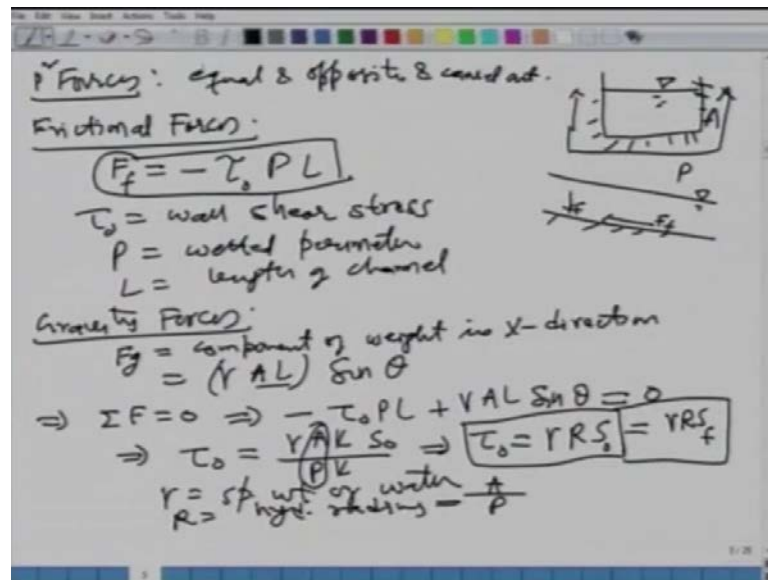 File Edit View Insert Actions Tools Help
pr Forces : equal & opposite & cancel out.
Frictional Forces :
F_f = - τ₀ P L
τ₀ = wall shear stress
P = wetted perimeter
L = length of channel
A
P
F_f
Gravity Forces :
Fg = component of weight in x-direction
= (γ A L) Sin θ
⇒ Σ F = 0 ⇒ - τ₀ P L + γ A L Sin θ = 0
⇒ τ₀ = γ A L S₀ / P L ⇒ τ₀ = γ R S₀ = γ R S_f
γ = sp. wt. of water
R = hyd. radius = A / P